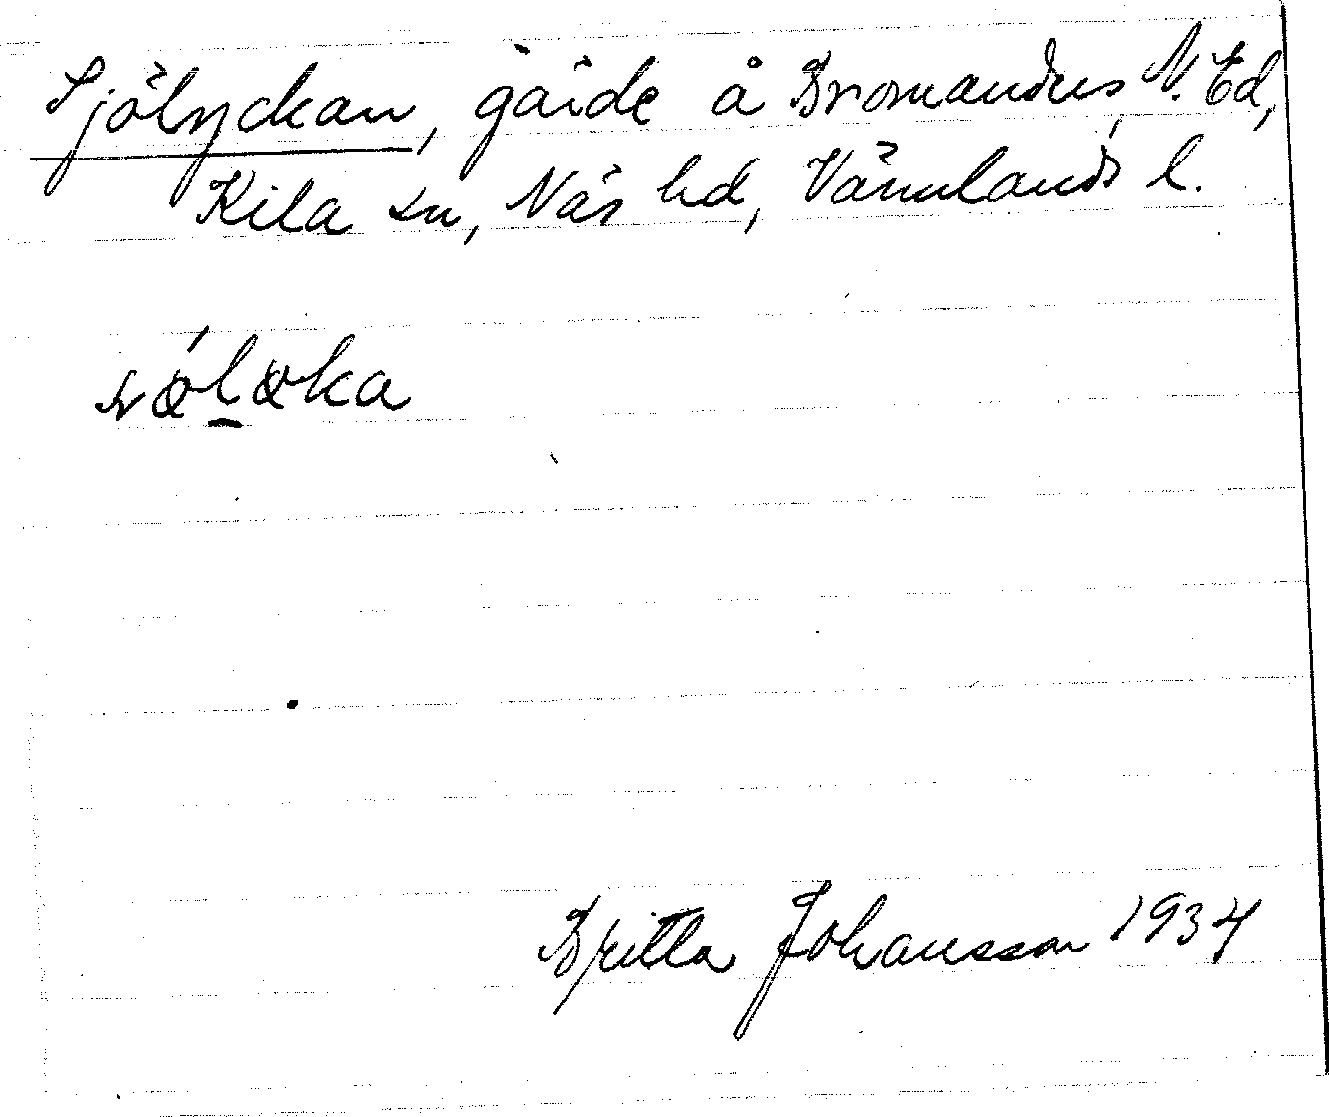 Sjölyckan, gärde å Bromanders, N. Ed,
Kila sn, Näs hd, Värmlands l.
Britta Johansson 1934